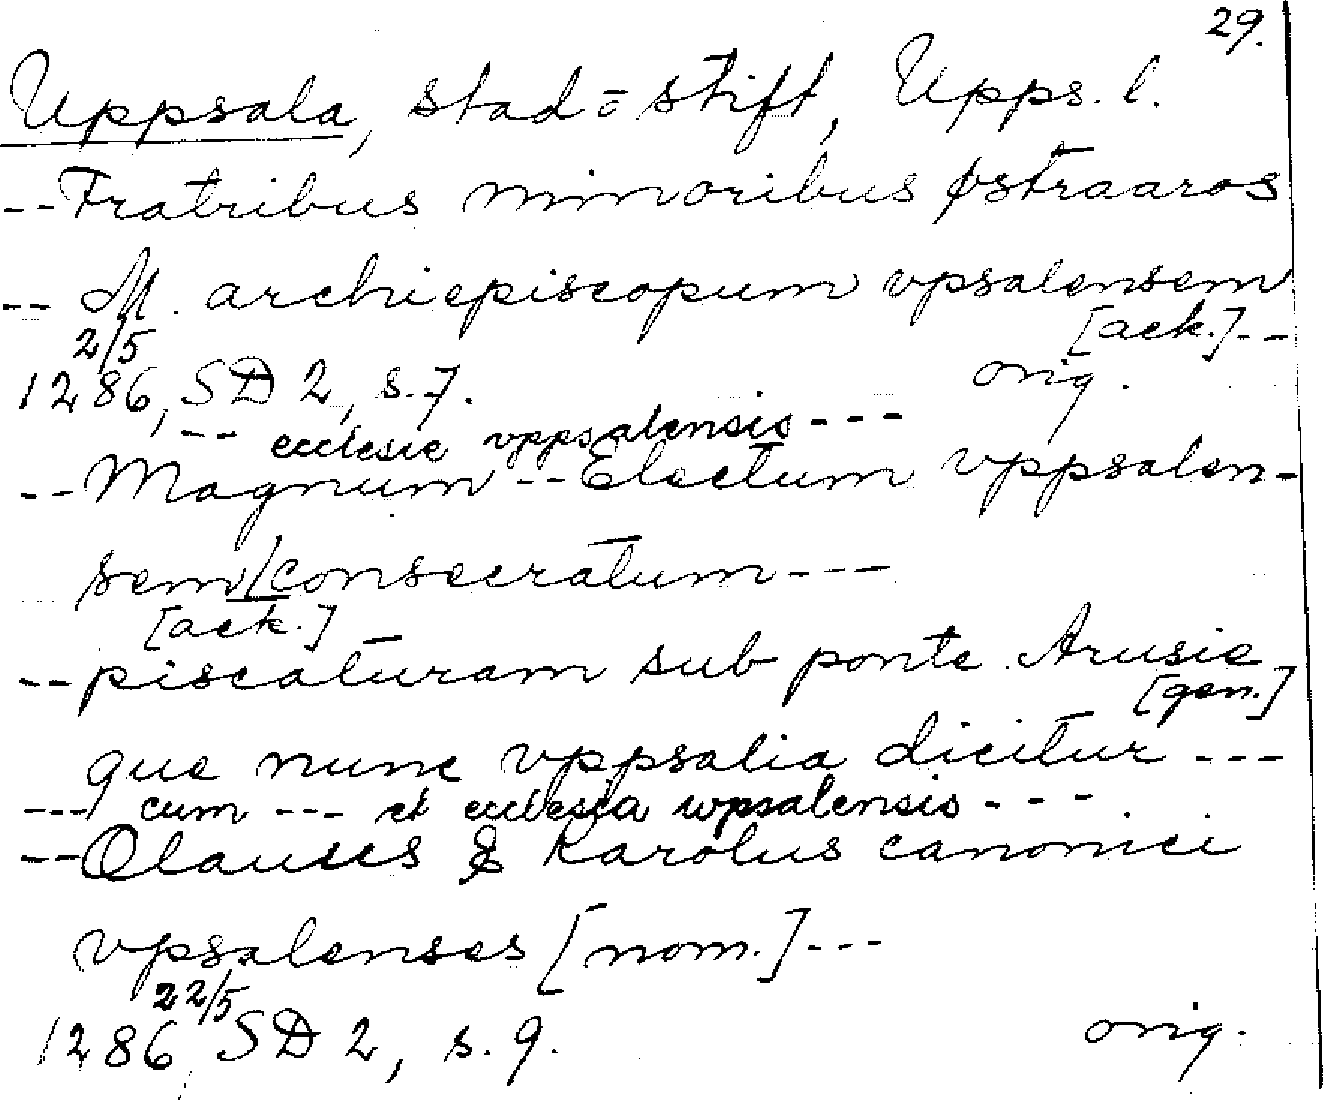 29.
Uppsala, stad o stift, Upps. l.
-- Fratribus minoribus østraaros
-- M. archiepiscopum vpsalensem
[ack.] --
2/5
1286, SD 2, s. 7. orig.
-- ecclesie vppsalensis ---
-- Magnum -- Electum vppsalen-
sem/consecratum ---
[ack.]
-- piscaturam sub ponte Arusie
[gen.]
que nunc vppsalia dicitur ---
--- cum --- et ecclesia wpsalensis ---
-- Olauus & Karolus canonici
vpsalenses [nom.] ---
22/5
1286, SD 2, s. 9. orig.